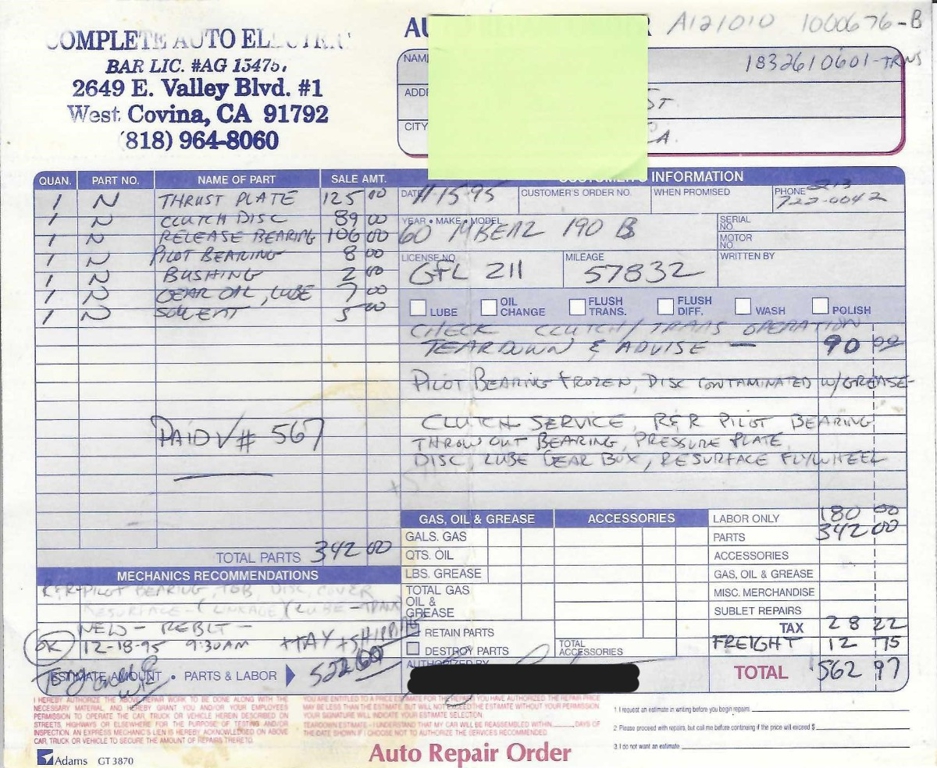 COMPLETE AUTO ELECTRIC
BAR LIC. #AG 15475
2649 E. Valley Blvd. #1
West Covina, CA 91792
(818) 964-8060
AU R A121010 1000676-B
NAM 1832610601-TRNS
ADD ST
CITY CA.
CUSTOMER'S INFORMATION
QUAN. PART NO. NAME OF PART SALE AMT.
1 N THRUST PLATE 125 00
1 N CLUTCH DISC 89 00
1 N RELEASE BEARING 106 00
1 N PILOT BEARING 8 00
1 N BUSHING 2 00
1 N GEAR OIL, LUBE 7 00
1 N SOLVENT 5 00
PAID √# 567
TOTAL PARTS 342 00
DATE 11-15-95 CUSTOMER'S ORDER NO. WHEN PROMISED PHONE 213 722-0042
YEAR • MAKE • MODEL 60 MBENZ 190 B SERIAL NO.
MOTOR NO.
LICENSE NO. GFL 211 MILEAGE 57832 WRITTEN BY
LUBE OIL CHANGE FLUSH TRANS. FLUSH DIFF. WASH POLISH
CHECK CLUTCH/TRANS OPERATION
TEARDOWN & ADVISE — 90 00
PILOT BEARING FROZEN, DISC CONTAMINATED W/GREASE-
CLUTCH SERVICE, R&R PILOT BEARING
THROW OUT BEARING, PRESSURE PLATE
DISC, LUBE GEAR BOX, RESURFACE FLYWHEEL
GAS, OIL & GREASE ACCESSORIES LABOR ONLY 180 00
GALS. GAS PARTS 342 00
QTS. OIL ACCESSORIES
LBS. GREASE GAS, OIL & GREASE
TOTAL GAS OIL & GREASE MISC. MERCHANDISE
SUBLET REPAIRS
RETAIN PARTS TAX 28 22
DESTROY PARTS TOTAL ACCESSORIES FREIGHT 12 75
AUTHORIZED BY TOTAL 562 97
MECHANICS RECOMMENDATIONS
R&R PILOT BEARING, TOB, DISC, COVER
RESURFACE - (LINKAGE) (LUBE - TRANS)
NEW - REBLT -
OK 12-18-95 9:30AM +TAX +SHIPPING
ESTIMATE AMOUNT • PARTS & LABOR 522.00
I HEREBY AUTHORIZE THE ABOVE REPAIR WORK TO BE DONE ALONG WITH THE
NECESSARY MATERIAL, AND HEREBY GRANT YOU AND/OR YOUR EMPLOYEES
PERMISSION TO OPERATE THE CAR, TRUCK OR VEHICLE HEREIN DESCRIBED ON
STREETS, HIGHWAYS OR ELSEWHERE FOR THE PURPOSE OF TESTING AND/OR
INSPECTION. AN EXPRESS MECHANIC'S LIEN IS HEREBY ACKNOWLEDGED ON ABOVE
CAR, TRUCK OR VEHICLE TO SECURE THE AMOUNT OF REPAIRS THERETO.
YOU ARE ENTITLED TO A PRICE ESTIMATE FOR THE REPAIR YOU HAVE AUTHORIZED. THE REPAIR PRICE
MAY BE LESS THAN THE ESTIMATE, BUT WILL NOT EXCEED THE ESTIMATE WITHOUT YOUR PERMISSION.
YOUR SIGNATURE WILL INDICATE YOUR ESTIMATE SELECTION.
TEARDOWN ESTIMATE - I UNDERSTAND THAT MY CAR WILL BE REASSEMBLED WITHIN DAYS OF
THE DATE SHOWN IF I CHOOSE NOT TO AUTHORIZE THE SERVICES RECOMMENDED.
1. I request an estimate in writing before you begin repairs.
2. Please proceed with repairs, but call me before continuing if the price will exceed $
3. I do not want an estimate.
Adams GT 3870
Auto Repair Order